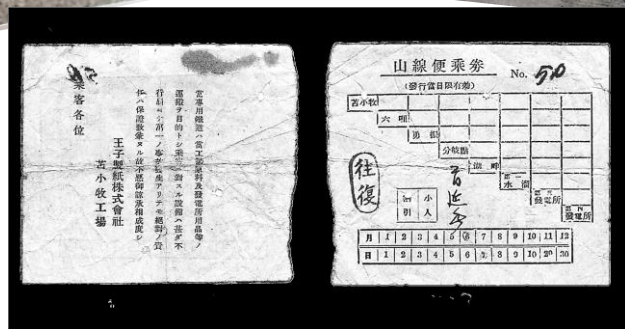 乗客各位
當専用鐵道ハ當工場原料及發電所用品等ノ
運搬ヲ目的トシ乗客ニ對スル設備ハ甚ダ不
任ハ保證致兼ヌル故不悪御諒承相成度シ
王子製紙株式會社
苫小牧工場
山線便乗券
No. 50
(發行當日限有効)
苫小牧
六哩
分岐點
湖畔
第一
水溜
發電所
發電所
往復
小人
月 1 2 3 4 5 6 7 8 9 10 11 12
日 1 2 3 4 5 6 7 8 9 10 20 30